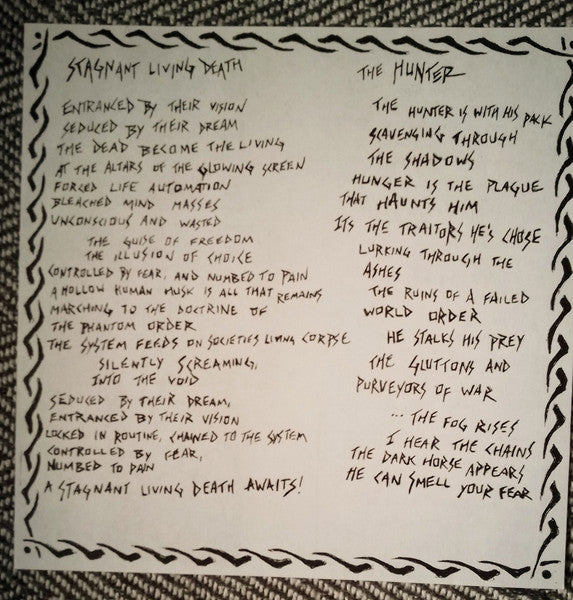 STAGNANT LIVING DEATH
ENTRANCED BY THEIR VISION
SEDUCED BY THEIR DREAM
THE DEAD BECOME THE LIVING
AT THE ALTARS OF THE GLOWING SCREEN
FORCED LIFE AUTOMATION
BLEACHED MIND MASSES
UNCONSCIOUS AND WASTED
THE GUISE OF FREEDOM
THE ILLUSION OF CHOICE
CONTROLLED BY FEAR, AND NUMBED TO PAIN
A HOLLOW HUMAN HUSK IS ALL THAT REMAINS
MARCHING TO THE DOCTRINE OF
THE PHANTOM ORDER
THE SYSTEM FEEDS ON SOCIETIES LIVING CORPSE
SILENTLY SCREAMING,
INTO THE VOID
SEDUCED BY THEIR DREAM,
ENTRANCED BY THEIR VISION
LOCKED IN ROUTINE, CHAINED TO THE SYSTEM
CONTROLLED BY FEAR,
NUMBED TO PAIN
A STAGNANT LIVING DEATH AWAITS!
THE HUNTER
THE HUNTER IS WITH HIS PACK
SCAVENGING THROUGH
THE SHADOWS
HUNGER IS THE PLAGUE
THAT HAUNTS HIM
ITS THE TRAITORS HE'S CHOSE
LURKING THROUGH THE
ASHES
THE RUINS OF A FAILED
WORLD ORDER
HE STALKS HIS PREY
THE GLUTTONS AND
PURVEYORS OF WAR
... THE FOG RISES
I HEAR THE CHAINS
THE DARK HORSE APPEARS
HE CAN SMELL YOUR FEAR